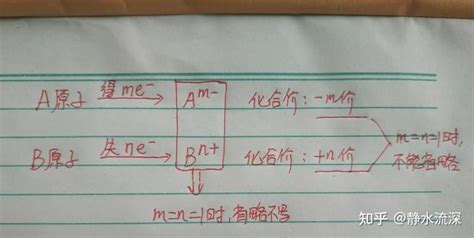 A原子 得me⁻ Aᵐ⁻ 化合价：-m价
B原子 失ne⁻ Bⁿ⁺ 化合价：+n价
m=n=1时,
不能省略
m=n=1时，省略不写
知乎 @静水流深